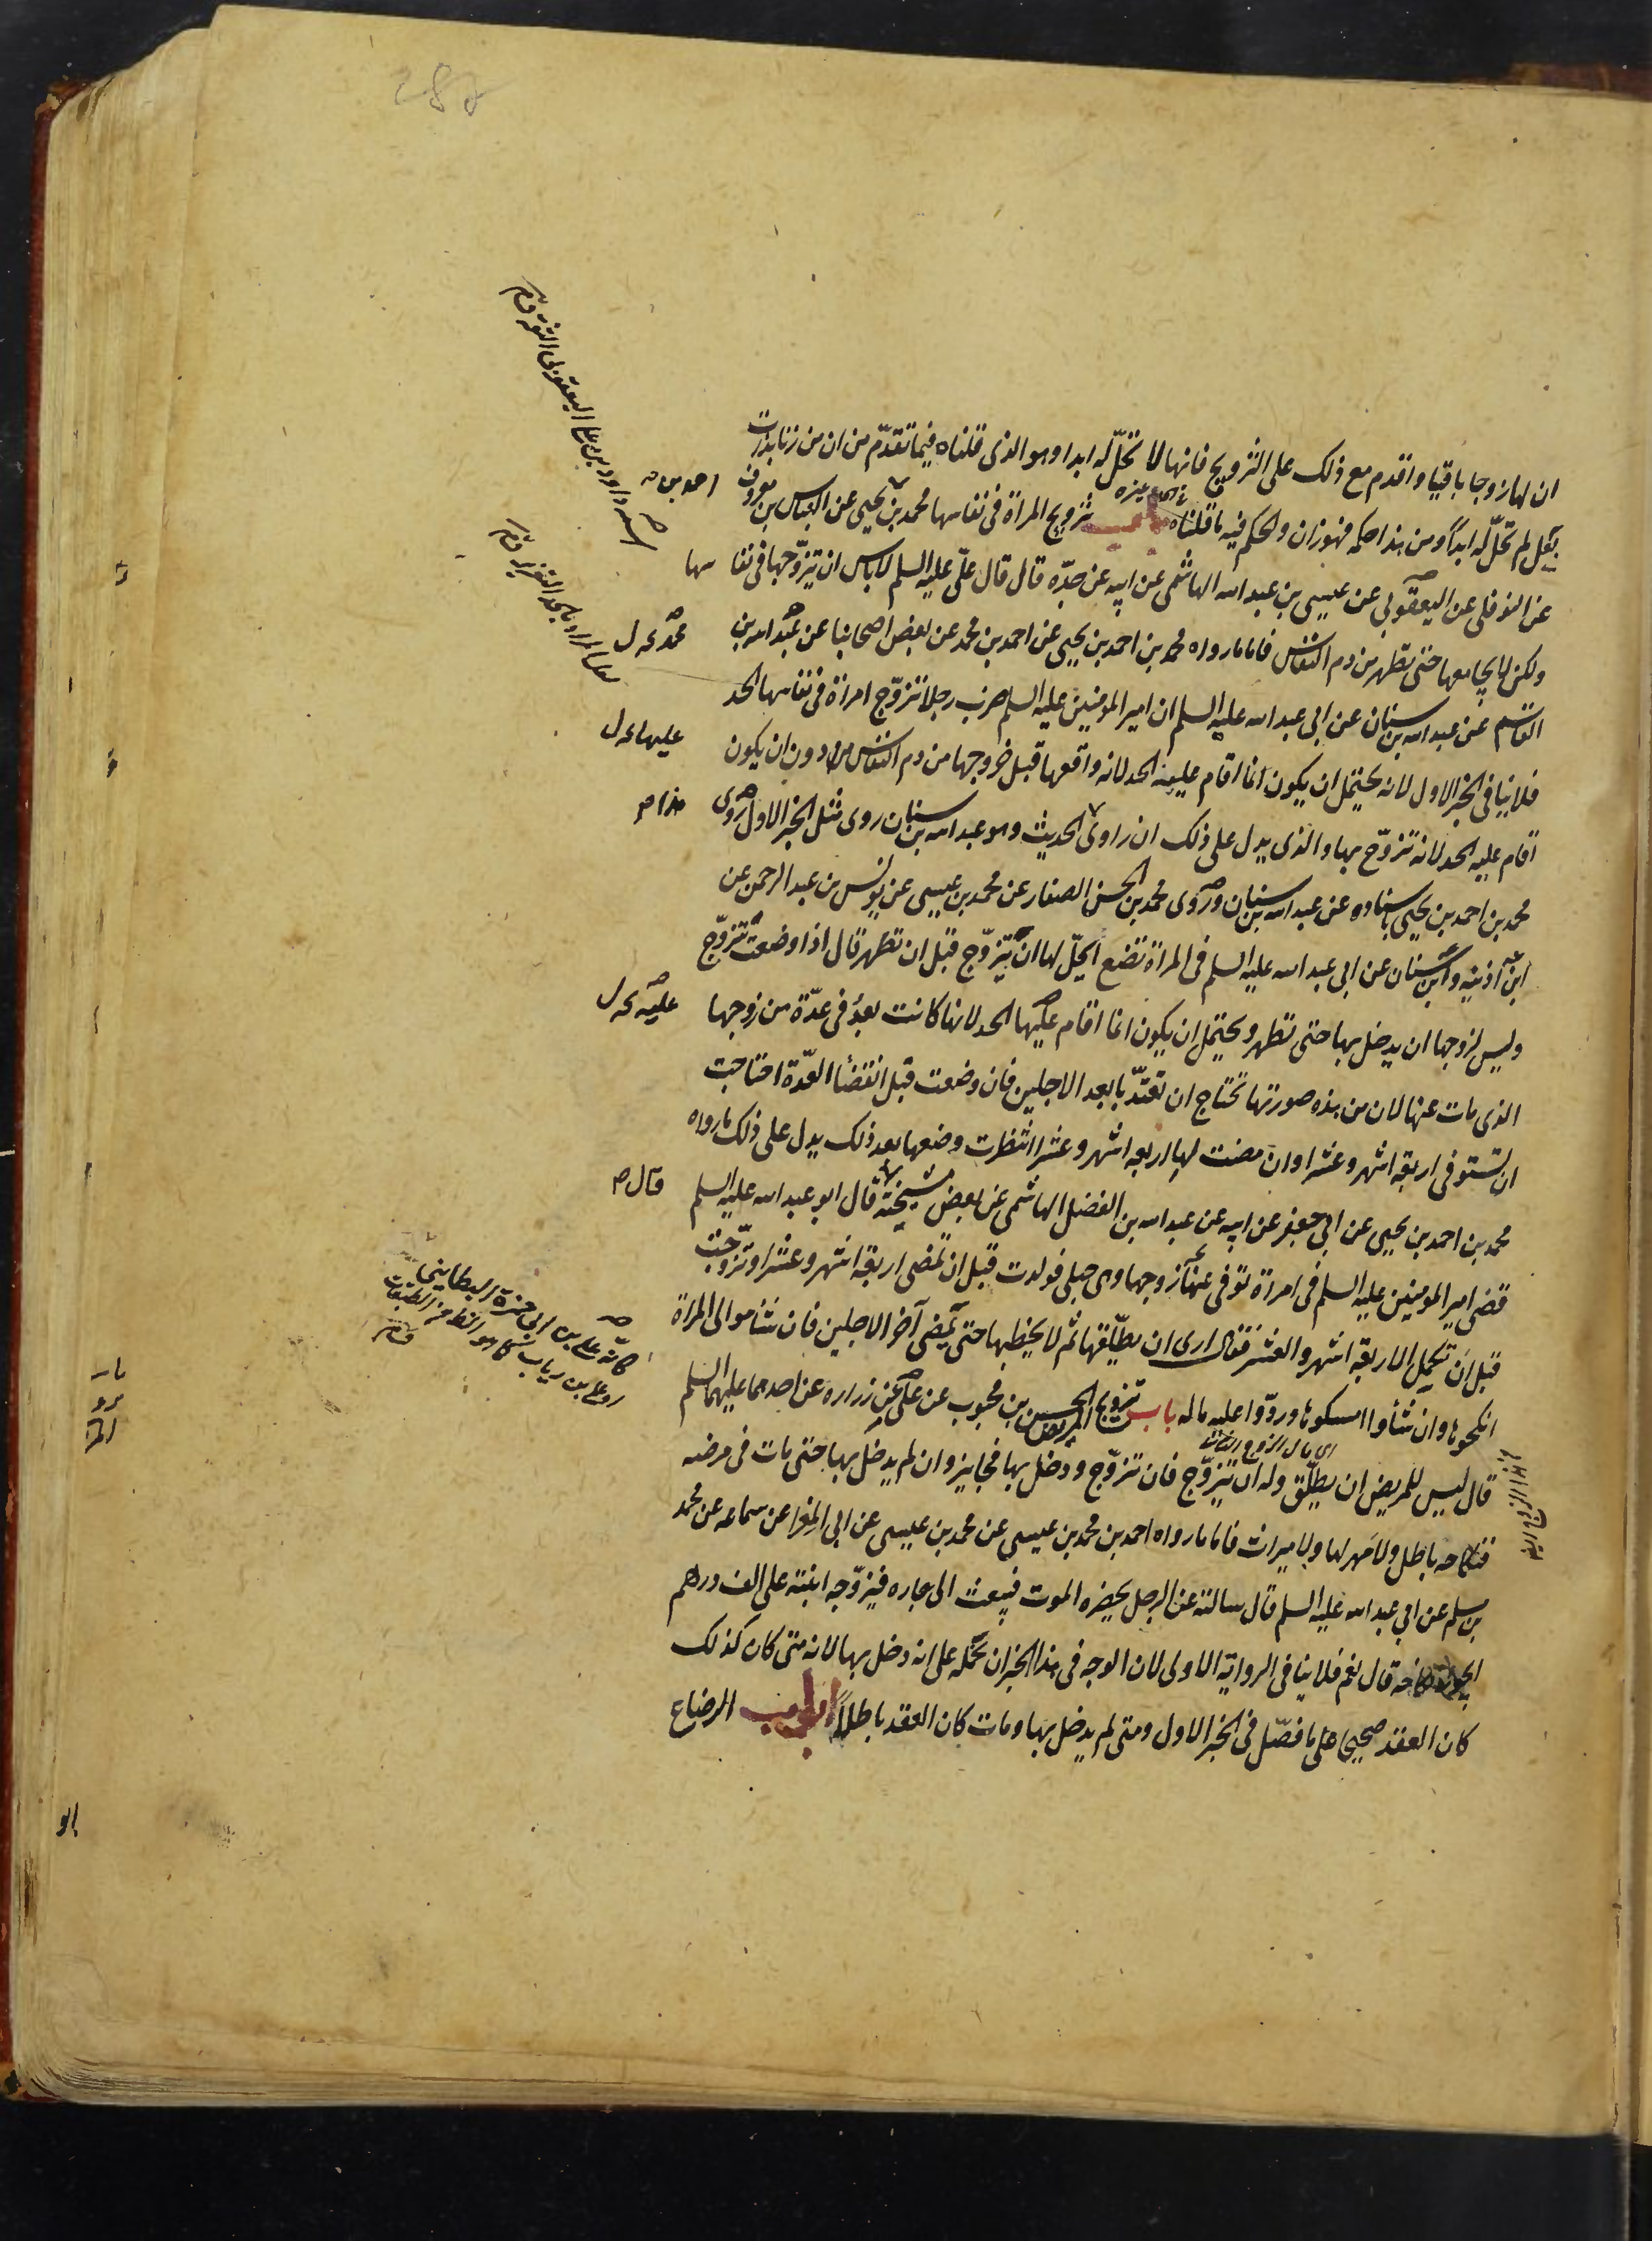 ان لها زوجا باقيا واقدم مع ذلك على التزويج فانها لا تحلّ له ابدا وهو الذى قلناه فيما تقدّم من ان من زنا بذات
بعل لم تحلّ له ابداً ومن هذا حكمه فهو زان والحكم فيه ما قلناه باب تزويج المراة فى نفاسها محمد بن يحيى عن العباس بن معروف
عن النوفلى عن اليعقوبى عن عيسى بن عبد الله الهاشمى عن ابيه عن جدّه قال قال علىّ عليه السلم لا باس ان يتزوّجها فى نفاسها
ولكن لا يجامعها حتى تطهر من دم النفاس فاما ما رواه محمد بن احمد بن يحيى عن احمد بن محمد عن بعض اصحابنا عن عبد الله بن
القاسم عن عبد الله بن سنان عن ابى عبد الله عليه السلم ان امير المومنين عليه السلم ضرب رجلا تزوّج امراة فى نفاسها الحد
فلا ينافى الخبر الاول لانه يحتمل ان يكون انما اقام عليه الحد لانه واقعها قبل خروجها من دم النفاس من دون ان يكون
اقام عليه الحد لانه تزوّج بها والذى يدل على ذلك ان راوى الحديث وهو عبد الله بن سنان روى مثل الخبر الاول روى
محمد بن احمد بن يحيى باسناده عن عبد الله بن سنان وروى محمد بن الحسن الصفار عن محمد بن عيسى عن يونس بن عبد الرحمن عن
ابن اذينه وابن سنان عن ابى عبد الله عليه السلم فى المراة تضع ايحلّ لها ان تتزوّج قبل ان تطهر قال اذا وضعت تزوّج
وليس لزوجها ان يدخل بها حتى تطهر ويحتمل ان يكون انما اقام عليها الحد لانها كانت بعد فى عدّة من زوجها
الذى مات عنها لان من هذه صورتها تحتاج ان تعتدّ بابعد الاجلين فان وضعت قبل انقضا العدّة احتاجت
ان تستوفى اربعة اشهر وعشرا وان مضت لها اربعه اشهر وعشرا انتظرت وضعها بعد ذلك يدل على ذلك ما رواه
محمد بن احمد بن يحيى عن ابى جعفر عن ابيه عن عبد الله بن الفضل الهاشمى عن بعض مشيخته قال ابو عبد الله عليه السلم
قضى امير المومنين عليه السلم فى امراة توفى عنها زوجها وهى حبلى فولدت قبل ان تمضى اربعة اشهر وعشرا وتزوّجت
قبل ان تكمل الاربعة اشهر والعشر فقال ارى ان يطلّقها ثم لا يخطبها حتى يمضى آخر الاجلين فان شأ موالى المراة
انكحوها وان شأوا امسكوها وردّوا عليه ماله باب تزويج المريض الحسن بن محبوب عن على عن زراره عن احدهما عليهما السلم
قال ليس للمريض ان يطلّق وله ان يتزوّج فان تزوّج ودخل بها فجايز وان لم يدخل بها حتى مات فى مرضه
فنكاحه باطل ولا مهر لها ولا ميراث فاما ما رواه احمد بن محمد بن عيسى عن محمد بن عيسى عن ابى المغرا عن سماعه عن محمد
بن مسلم عن ابى عبد الله عليه السلم قال سالته عن الرجل يحضره الموت فيبعث الى جاره فيزوّجه ابنته على الف درهم
ايجوز نكاحه قال نعم فلا ينافى الرواية الاولى لان الوجه فى هذا الخبر ان نحمله على انه دخل بها لانه متى كان كذلك
كان العقد صحيحا على ما فصّل فى الخبر الاول ومتى لم يدخل بها ومات كان العقد باطلاً ابواب الرضاع
احمد بن
محمد
عليها
هذا
عليه
قال
اسمه داود بن على اليعقوبى الثقة
كانه على بن ابى حمزة البطاينى
او على بن رياب كما هو الظ من الطبقات